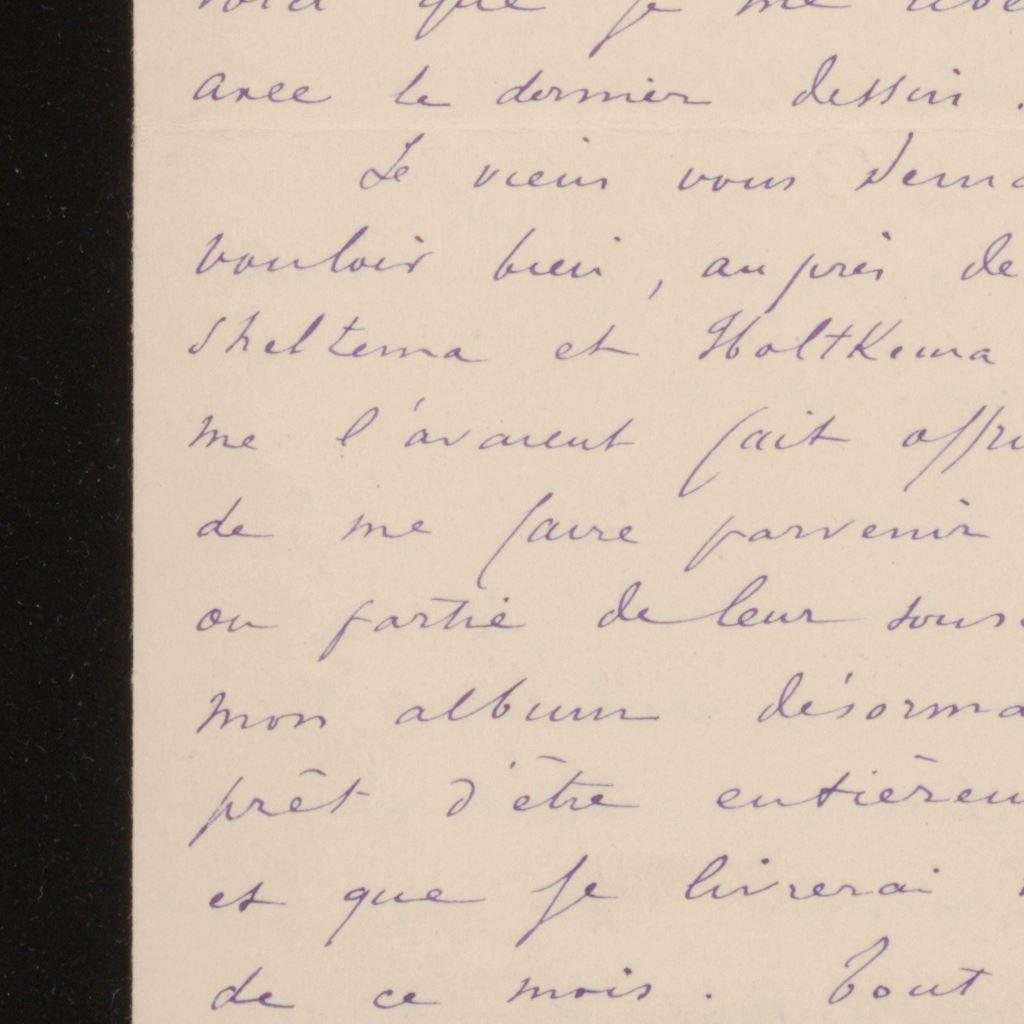 que je me
avec le dernier dessin.
Je viens vous dema
vouloir bien, auprès de
Sheltema et Holtkema
me l'avaient fait offri
de me faire parvenir
ou partie de leur sous
mon album désorma
prêt d'être entièrem
et que je livrerai
de ce mois. Tout